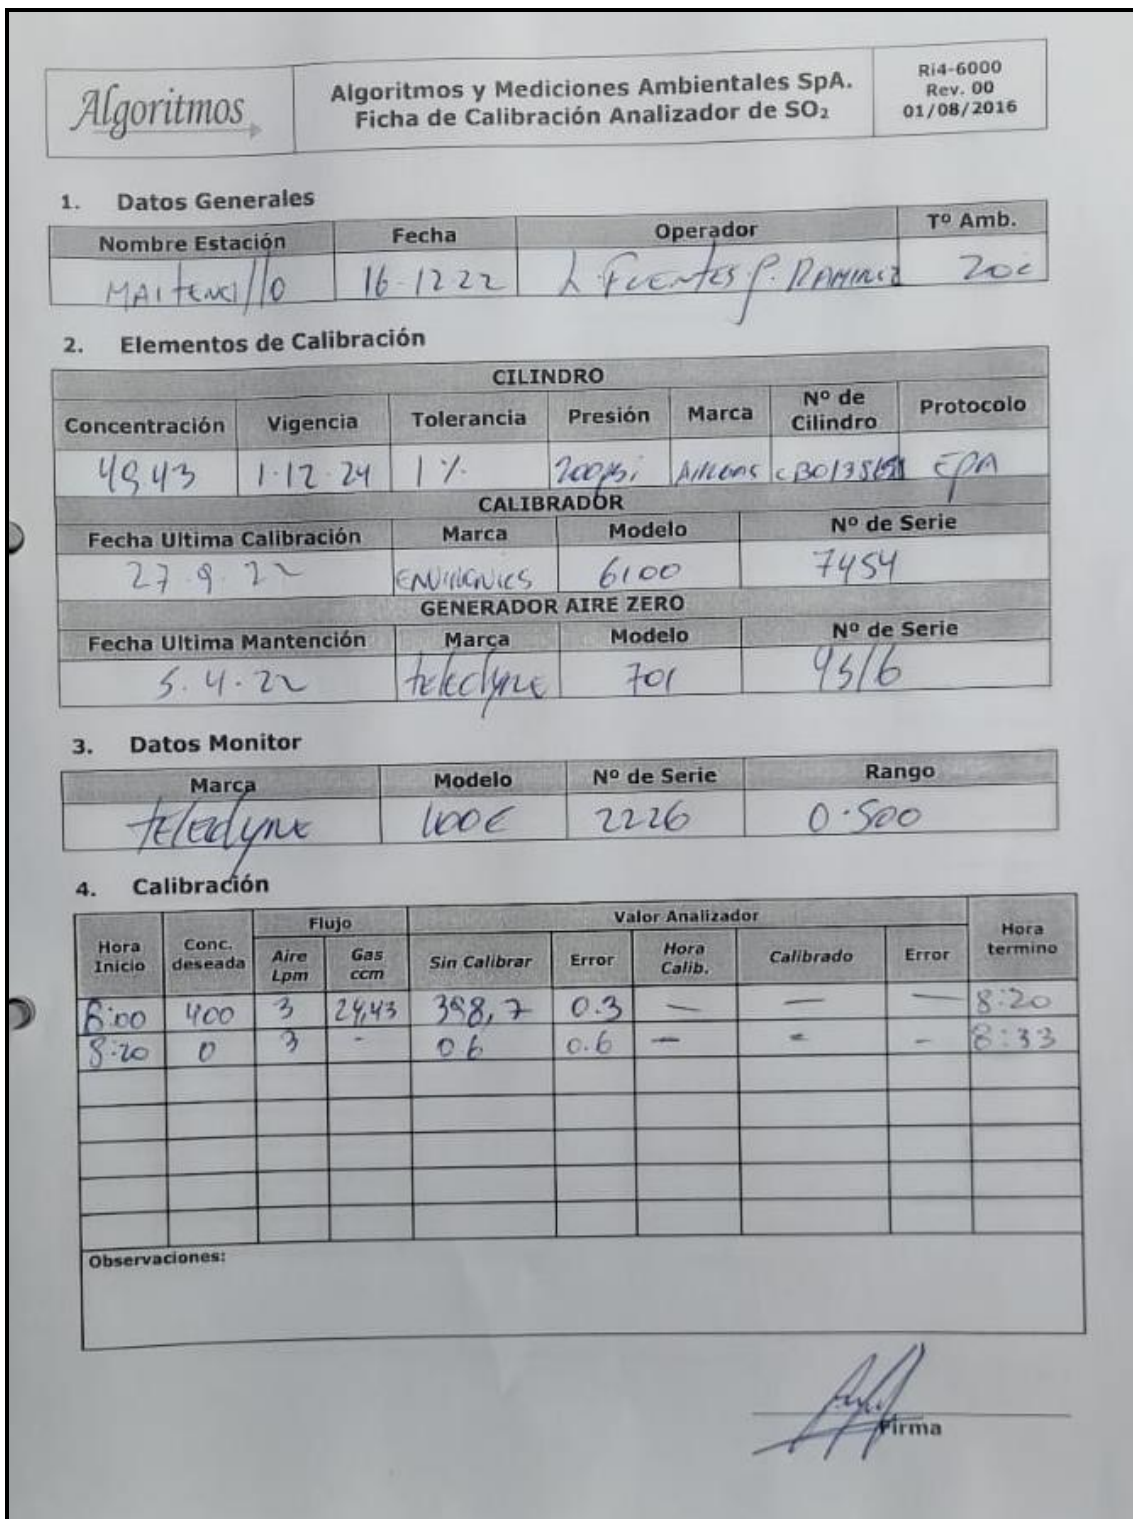 Algoritmos
Algoritmos y Mediciones Ambientales SpA.
Ficha de Calibración Analizador de SO₂
Ri4-6000
Rev. 00
01/08/2016
1. Datos Generales
Nombre Estación Fecha Operador Tº Amb.
MAITENCILLO 16-12-22 L. FUENTES P. RAMIREZ 20c
2. Elementos de Calibración
CILINDRO
Concentración Vigencia Tolerancia Presión Marca Nº de Cilindro Protocolo
49,43 1-12-24 1% 200psi AIRGAS EPA
CALIBRADOR
Fecha Ultima Calibración Marca Modelo Nº de Serie
27.9.22 ENVIRONICS 6100 7454
GENERADOR AIRE ZERO
Fecha Ultima Mantención Marca Modelo Nº de Serie
5.4.22 teledyne 701
3. Datos Monitor
Marca Modelo Nº de Serie Rango
teledyne 100E 2226 0-500
4. Calibración
Flujo Valor Analizador
Hora Inicio Conc. deseada Aire Lpm Gas ccm Sin Calibrar Error Hora Calib. Calibrado Error Hora termino
8:00 400 3 24,43 398,7 0.3 — — — 8:20
8:20 0 3 - 0.6 0.6 — - - 8:33
Observaciones:
Firma